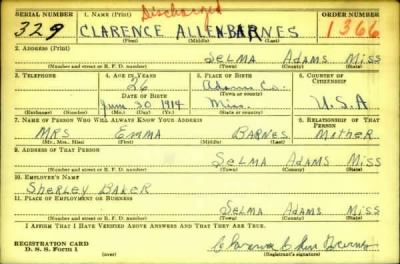 SERIAL NUMBER 1. NAME (Print) Discharged ORDER NUMBER
329 CLARENCE ALLEN BARNES 1366
(First) (Middle) (Last)
2. ADDRESS (Print)
SELMA ADAMS MISS
(Number and street or R. F. D. number) (Town) (County) (State)
3. TELEPHONE 4. AGE IN YEARS 5. PLACE OF BIRTH 6. COUNTRY OF CITIZENSHIP
26 Adams Co.
DATE OF BIRTH (Town or county)
June 30 1914 Miss. U.S.A
(Exchange) (Number) (Mo.) (Day) (Yr.) (State or country)
7. NAME OF PERSON WHO WILL ALWAYS KNOW YOUR ADDRESS 8. RELATIONSHIP OF THAT PERSON
MRS EMMA BARNES MOTHER
(Mr., Mrs., Miss) (First) (Middle) (Last)
9. ADDRESS OF THAT PERSON
SELMA ADAMS MISS
(Number and street or R. F. D. number) (Town) (County) (State)
10. EMPLOYER'S NAME
SHERLEY BAKER
11. PLACE OF EMPLOYMENT OR BUSINESS
SELMA ADAMS MISS
(Number and street or R. F. D. number) (Town) (County) (State)
I AFFIRM THAT I HAVE VERIFIED ABOVE ANSWERS AND THAT THEY ARE TRUE.
REGISTRATION CARD
D. S. S. Form 1 (over) (Registrant's signature)